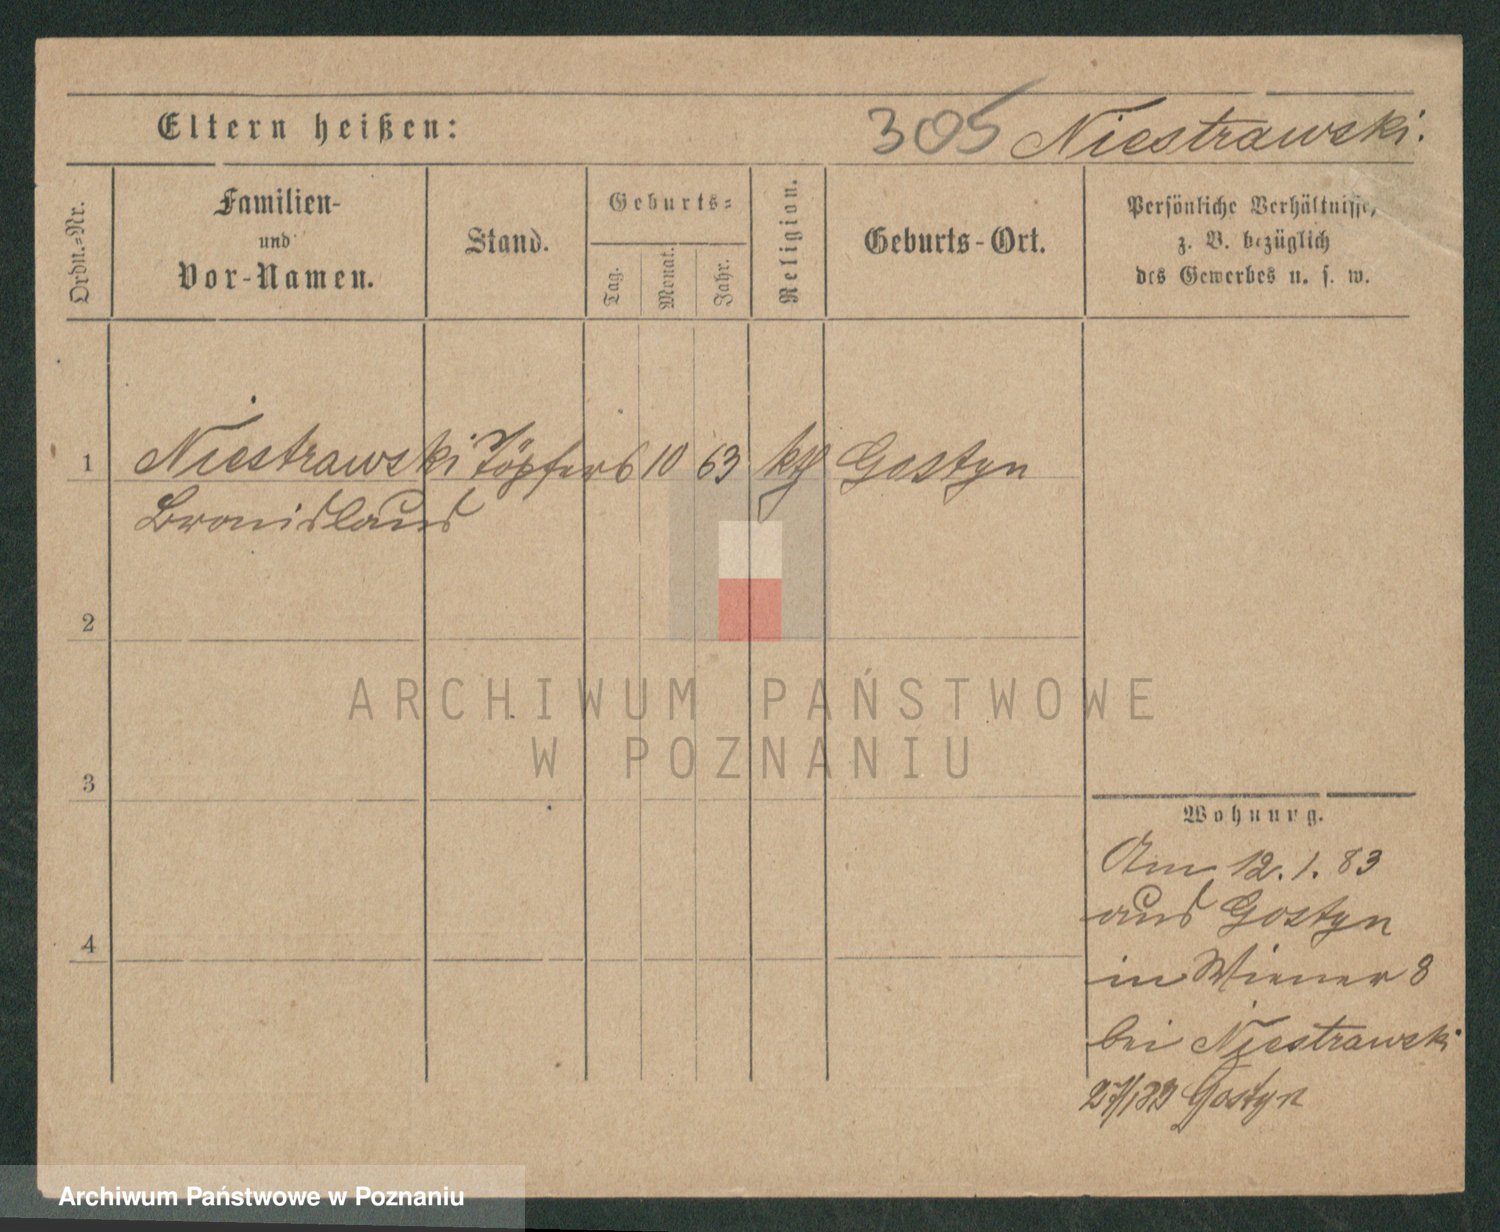 Eltern heißen: 305 Niestrawski.
Ordn.-Nr.
Familien-
und
Vor-Namen.
Stand.
Geburts-
Tag.
Monat.
Jahr.
Religion.
Geburts-Ort.
Persönliche Verhältnisse,
z. B. bezüglich
des Gewerbes u. s. w.
1 Niestrawski Töpfer 6 10 63 kth Gostyn
Bronislaus
2
3
4
Wohnung.
Am 12. 1. 83
aus Gostyn
in Wiener 8
bei Niestrawski
Gostyn
ARCHIWUM PAŃSTWOWE
W POZNANIU
Archiwum Państwowe w Poznaniu